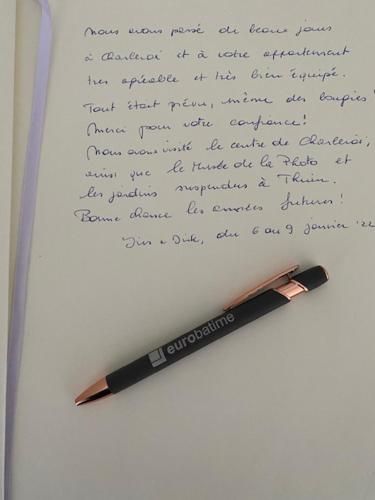 Nous avons passé de beaux jours
à Charleroi et à votre appartement
très agréable et très bien équipé.
Tout était prévu, même des bougies!
Merci pour votre confiance!
Nous avons visité le centre de Charleroi,
ainsi que le Musée de la Photo et
les jardins suspendus à Thuin.
Bonne chance les années futures!
& Dirk, du 6 au 9 janvier '22
eurobatime